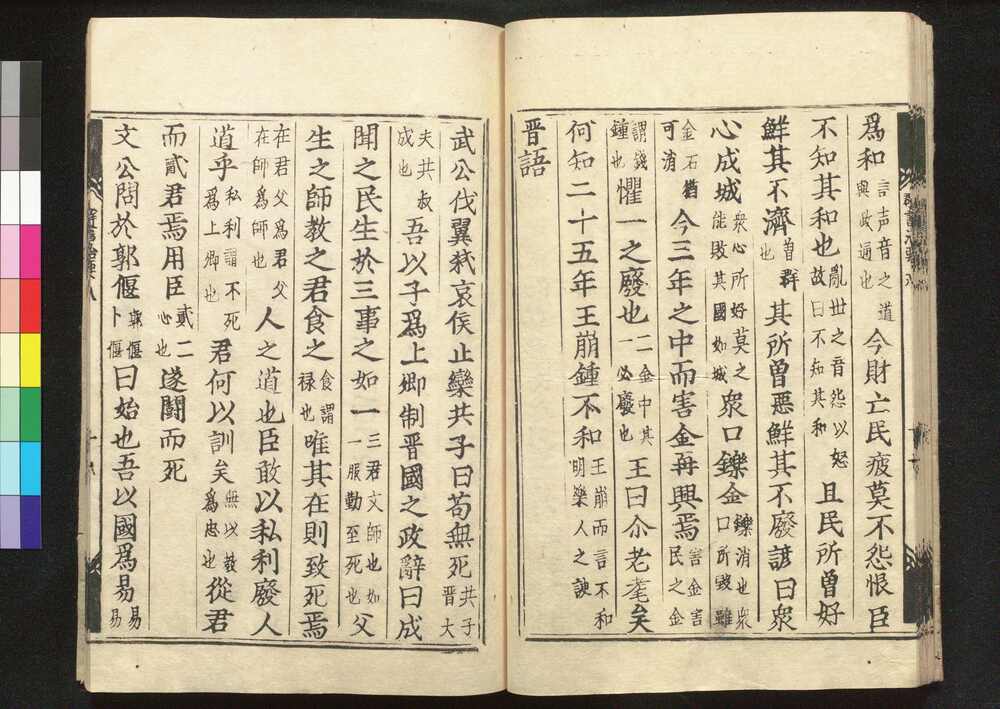 爲和言声音之道與政通也今財亡民疲莫不怨恨臣
不知其和也亂世之音怨以怒故曰不知其和且民所曽好
鮮其不濟曽群也其所曽惡鮮其不廢諺曰衆
心成城衆心所好莫之能敗其國如城衆口鑠金鑠消也衆口所毀雖
金石猶可消今三年之中而害金再興焉害金害民之金
謂錢鍾也懼一之廢也二金中其一必廢也王曰尒老耄矣
何知二十五年王崩鍾不和王崩而言不和明樂人之諛
晋語
武公伐翼弑哀侯止欒共子曰苟無死共子晋大
夫共叔成也吾以子爲上卿制晋國之政辭曰成
聞之民生於三事之如一三君父師也如一服勤至死也父
生之師教之君食之食謂禄也唯其在則致死焉
在君父爲君父在師爲師也人之道也臣敢以私利廢人
道乎私利謂不死爲上卿也君何以訓矣無以教爲忠也從君
而貳君焉用臣貳二心也遂鬪而死
文公問於郭偃郭偃卜偃曰始也吾以國爲易易易